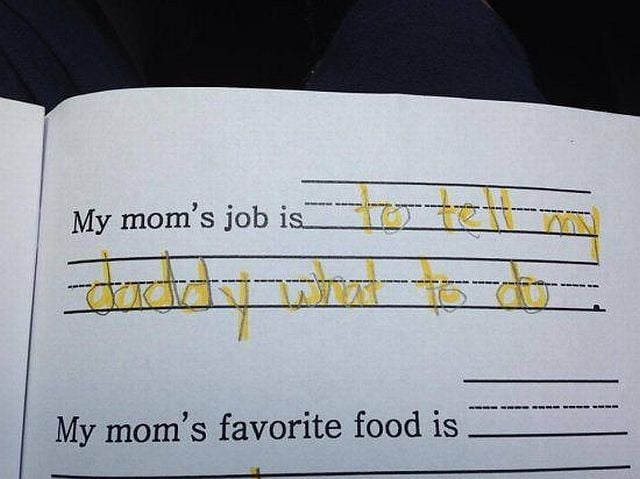 My mom's job is to tell my
daddy what to do.
My mom's favorite food is